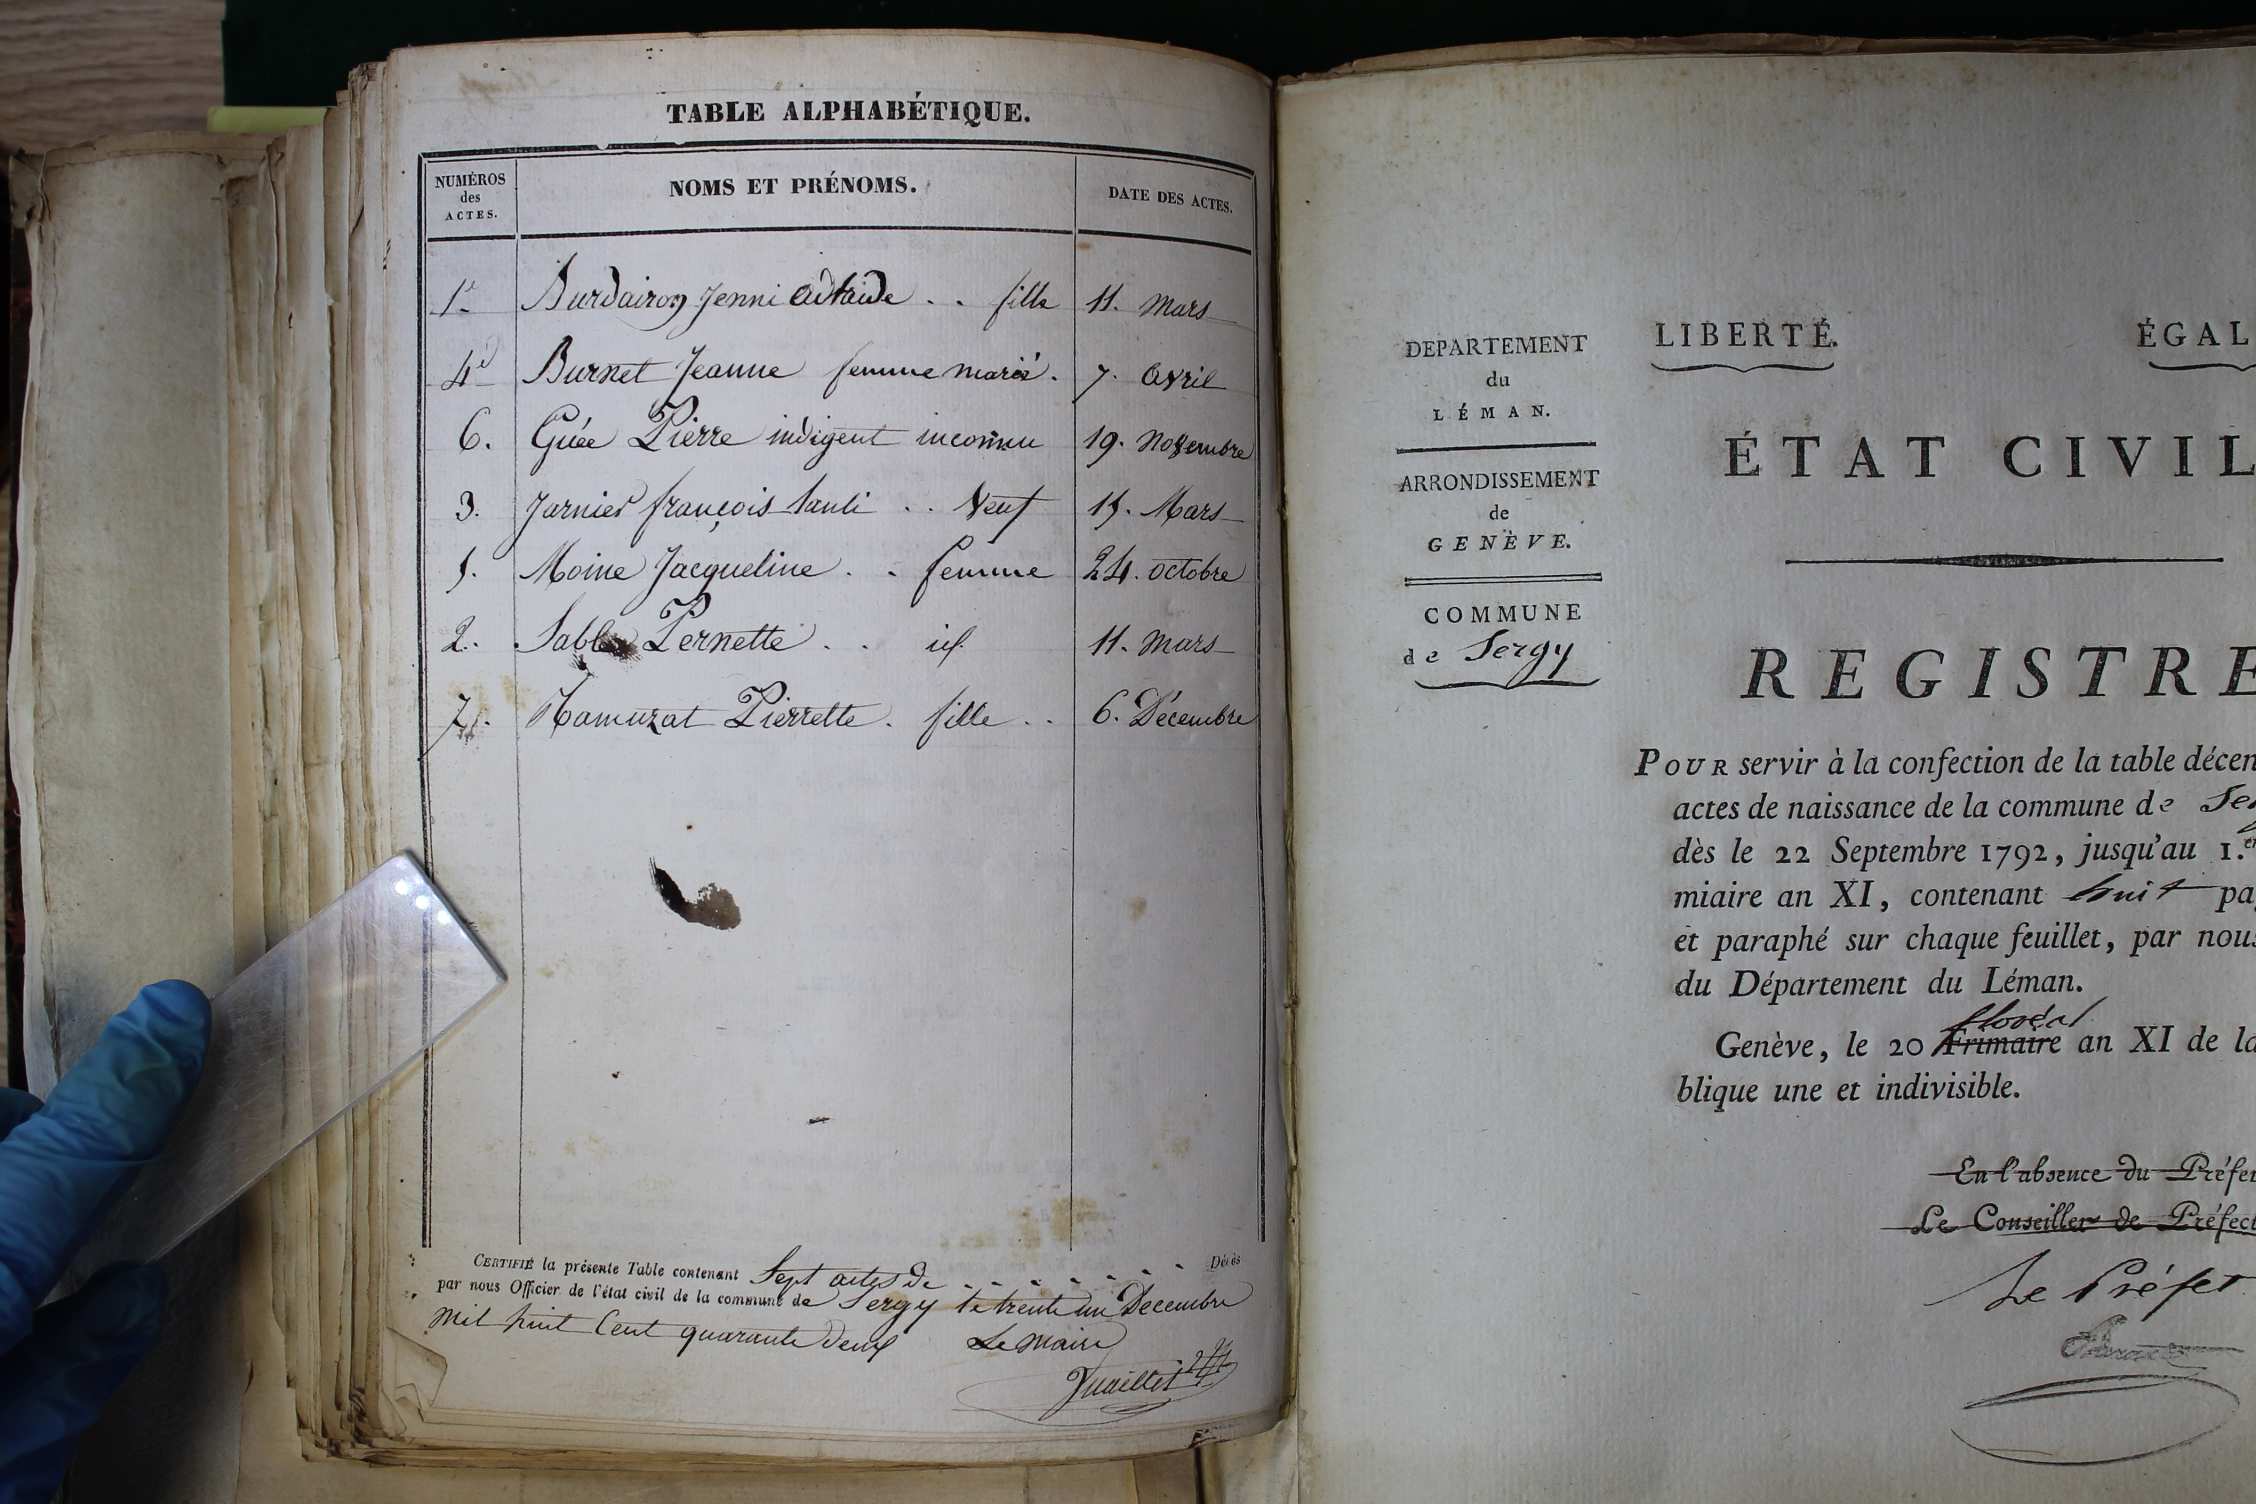 TABLE ALPHABÉTIQUE.
NUMÉROS des ACTES.
NOMS ET PRÉNOMS.
DATE DES ACTES.
1e Burdairon Jenni adtaide . . fille 11. Mars
4e Burnet Jeanne femme marié. 7. avril
6. Guée Pierre indigent inconnu 19. Novembre
3. Jarnier françois . . Veuf 15. Mars
5. Moine Jacqueline . . femme 24. octobre
2. Sables Pernette . . id. 11. Mars
7. Hamuzat Pierrette . fille . . 6. Décembre
CERTIFIÉ la présente Table contenant Sept actes de . . . . . . . Décès
par nous Officier de l'état civil de la commune de Sergy le trente un Décembre
mil huit Cent quarante deux Le maire
DEPARTEMENT
du
LÉMAN.
ARRONDISSEMENT
de
GENÈVE.
COMMUNE
de Sergy
LIBERTÉ. ÉGAL
ÉTAT CIVIL
REGISTRE
POUR servir à la confection de la table décen
actes de naissance de la commune de Ser
dès le 22 Septembre 1792, jusqu'au 1.er
miaire an XI, contenant huit pa
et paraphé sur chaque feuillet, par nous
du Département du Léman.
floréal
Genève, le 20 Frimaire an XI de la
blique une et indivisible.
En l'absence du Préfe
Le Conseiller de Préfect
Le Préfet